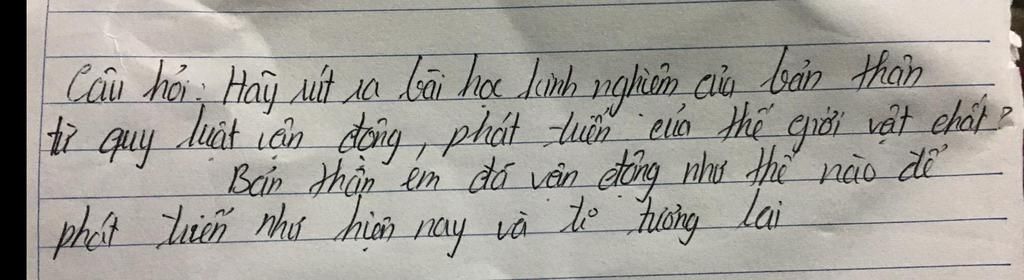 Câu hỏi: Hãy rút ra bài học kinh nghiệm của bản thân
từ quy luật vận động, phát triển của thế giới vật chất?
Bản thân em đã vận động như thế nào để
phát triển như hiện nay và từ tương lai